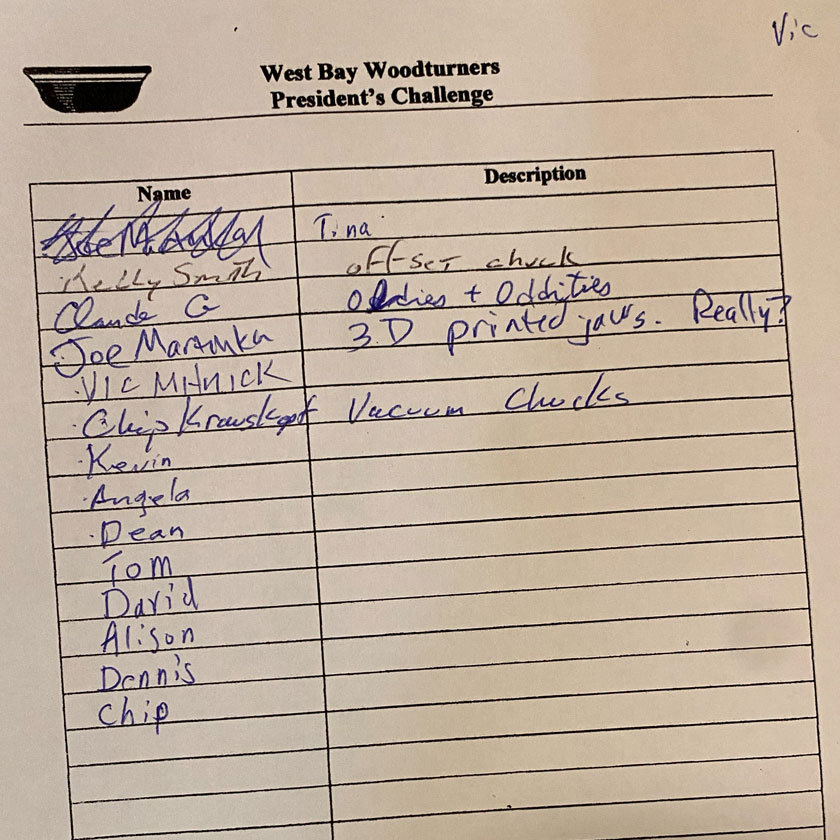 Vic
West Bay Woodturners
President's Challenge
Name Description
Tina
Kelly Smith off-set chuck
Claude G Oldies + Oddities
Joe Martinka 3D printed jaws. Really?
VIC MITNICK
Chip Krauskopf Vacuum Chucks
Kevin
Angela
Dean
Tom
David
Alison
Dennis
Chip